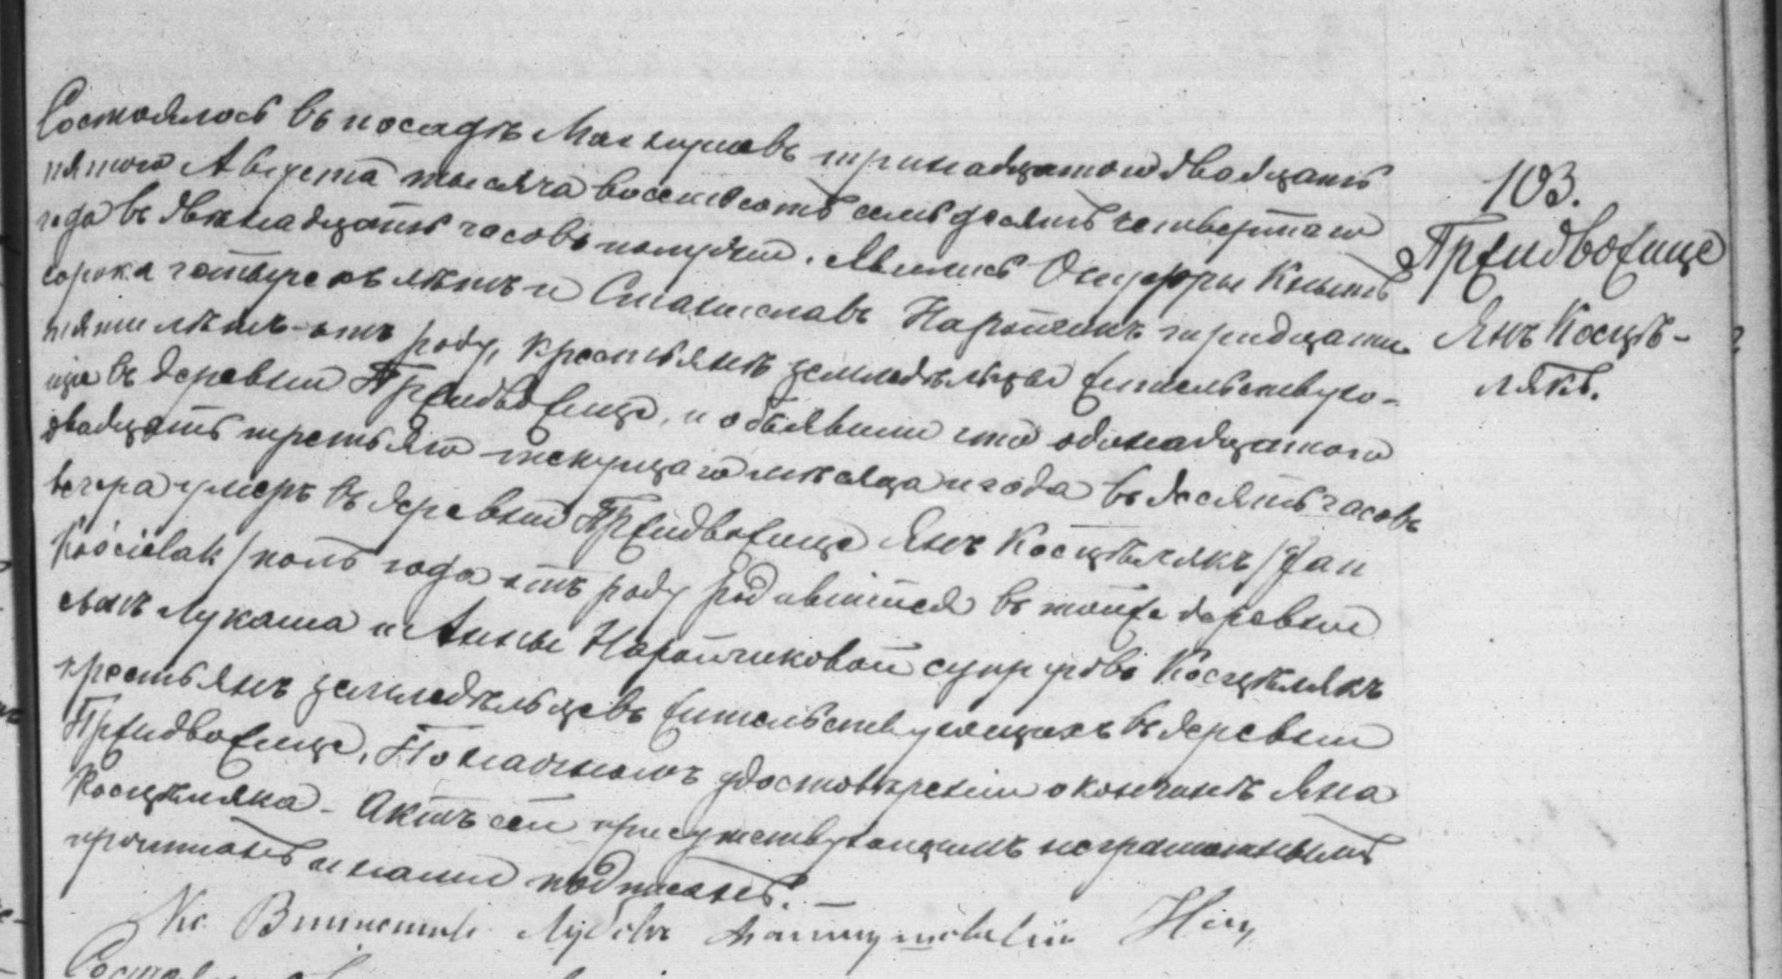 Состоялось въ посадѣ Маткушовъ тринадцатого двадцать
пятого Августа тысяча восемьсотъ семьдесятъ четвертаго
года въ двѣнадцать часовъ полудни. Явились Онуфры Кнытъ
сорока четырехъ лѣтъ и Станиславъ Нарайчикъ тридцати
пяти лѣтъ отъ роду, крестьянѣ земледѣльцы жительствую-
щіе въ деревни Пржидвожице, и объявили что одинадцатого
двадцать третьяго текущаго мѣсяца и года въ десять часовъ
вечера умеръ въ деревни Пржидвожице Янъ Косцѣлякъ /Jan
Kościelak/ полъ года отъ роду родившійся въ тойже деревни
сынъ Лукаша и Анны Нарайчиковой супруговъ Косцѣлякъ
крестьянъ земледѣльцевъ жительствующихъ въ деревни
Пржидвожице. По наочномъ удостовѣреніи о кончинѣ Яна
Косцѣляка - Актъ сей присутствующимъ неграмотнымъ
прочитанъ и нами подписанъ. —
Кс. Винценты
103.
Пржидвожице
Янъ Косцѣ-
лякъ.